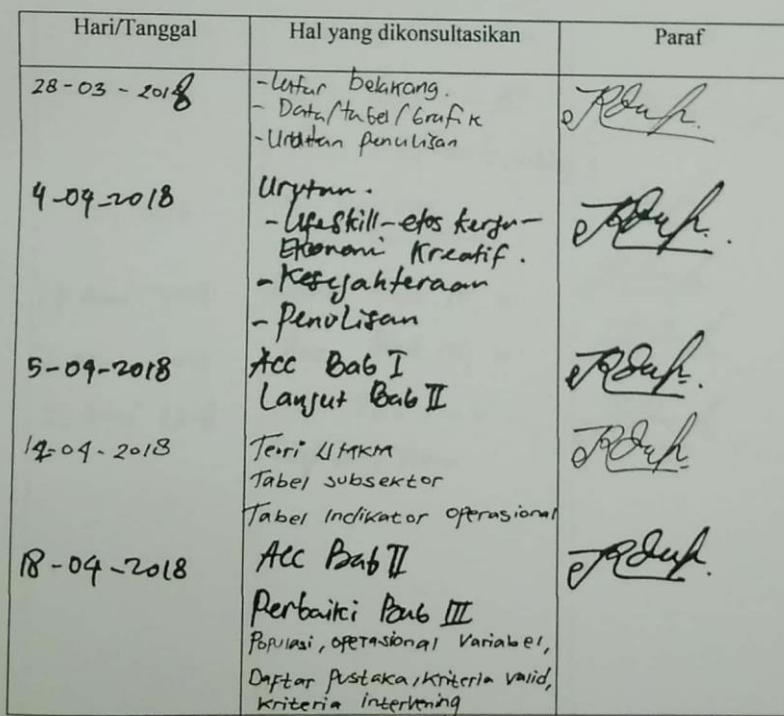 Hari/Tanggal Hal yang dikonsultasikan Paraf
28-03-2018 - Latar belakang.
- Data/tabel/Grafik
- Urutan penulisan
4-04-2018 Urutan.
- Lifeskill-etos kerja-
Ekonomi Kreatif.
- Kesejahteraan
- Penulisan
5-04-2018 Acc Bab I
Lanjut Bab II
12-04-2018 Teori UMKM
Tabel subsektor
Tabel Indikator operasional
18-04-2018 Acc Bab II
Perbaiki Bab III
Populasi, operasional Variabel,
Daftar Pustaka, Kriteria valid,
Kriteria intervening